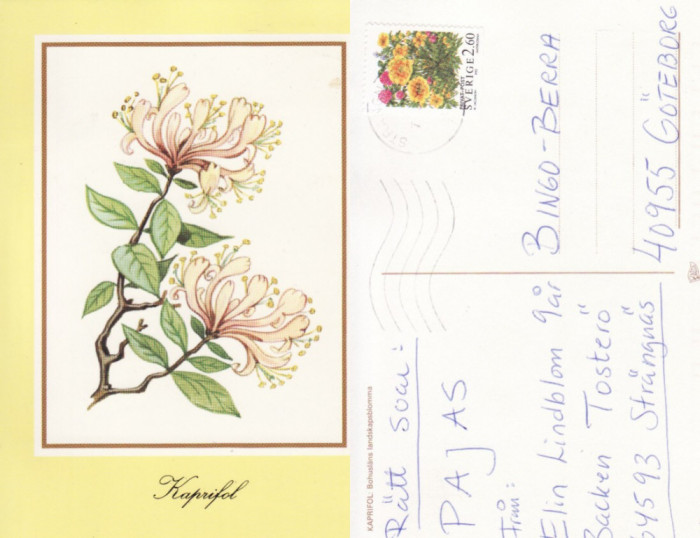 Kaprifol
KAPRIFOL. Bohusläns landskapsblomma
Rätt svar:
PAJAS
Från:
Elin Lindblom går
Backen Tosterö
64593 Strängnäs
SVERIGE 2.60
BINGO-BERRA
40955 GÖTEBORG